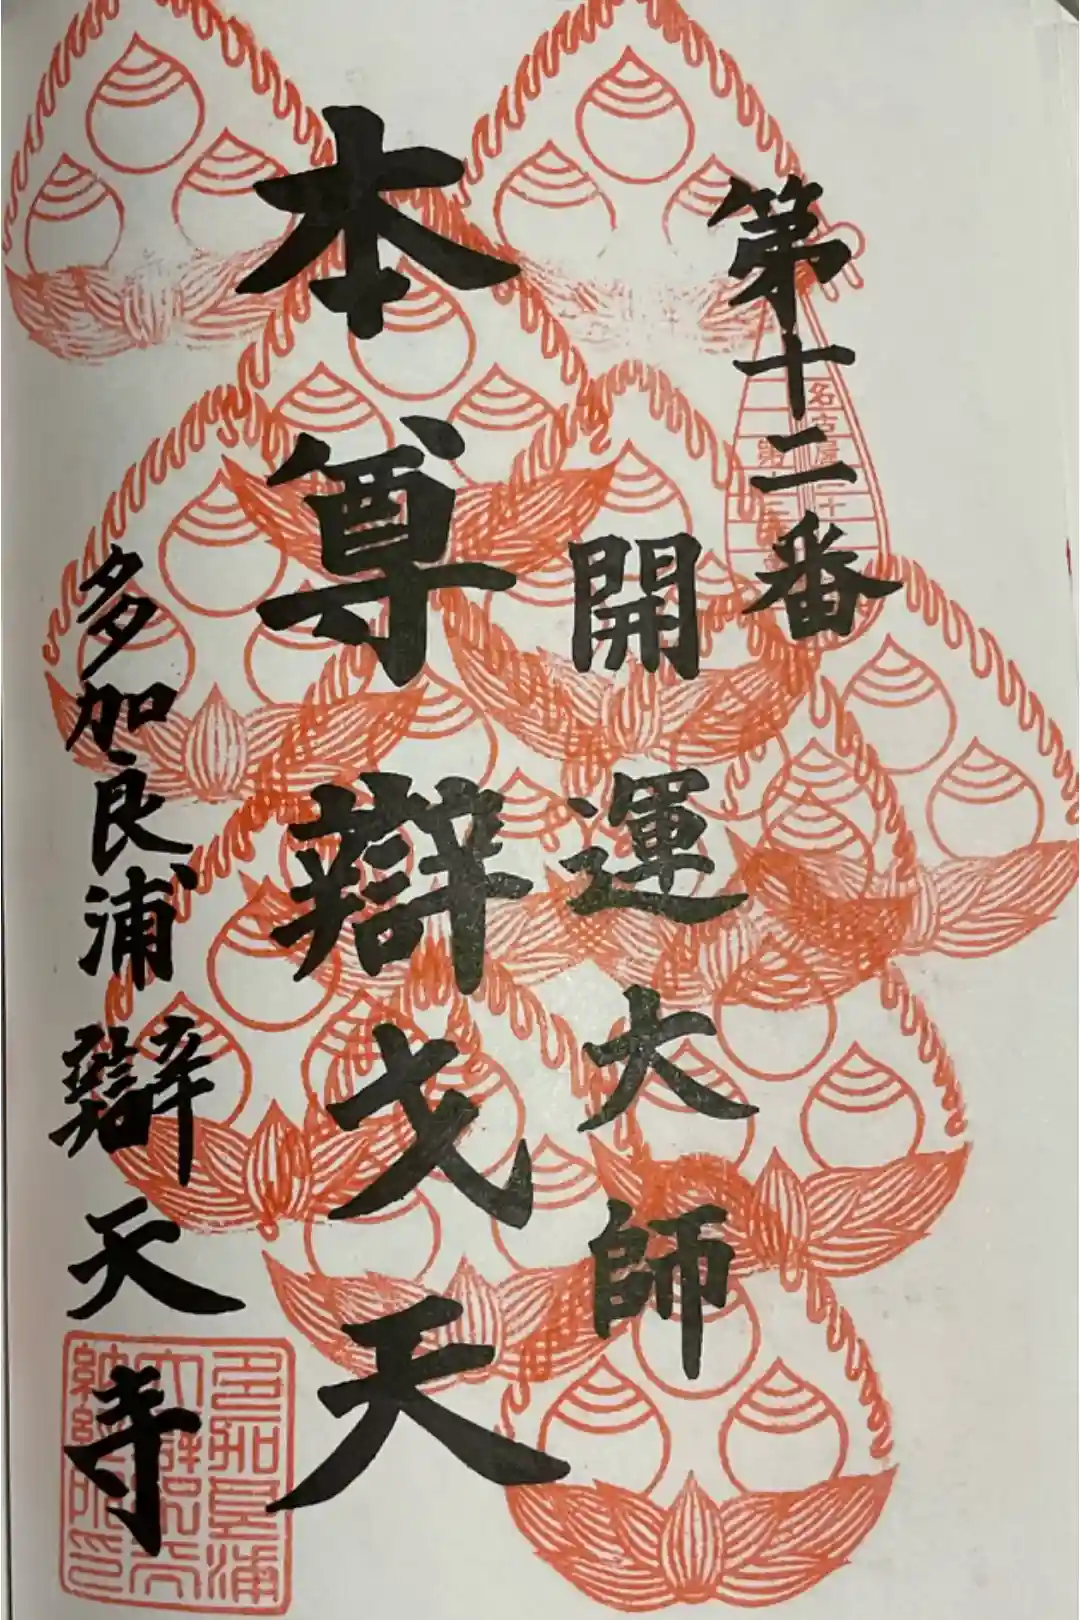 第十二番
開運大師
本尊辯戈天
多加良浦 辯天寺
名古屋二十
第十二